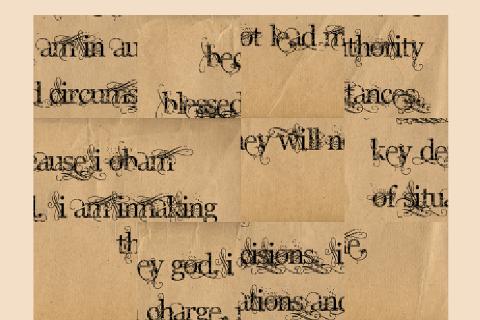 am in au bec ot lead m thority
d circums blessed tances,
ause i obam ey will n key de
. i am in making of situa
th ey god, i cisions. i e,
charge, ations and